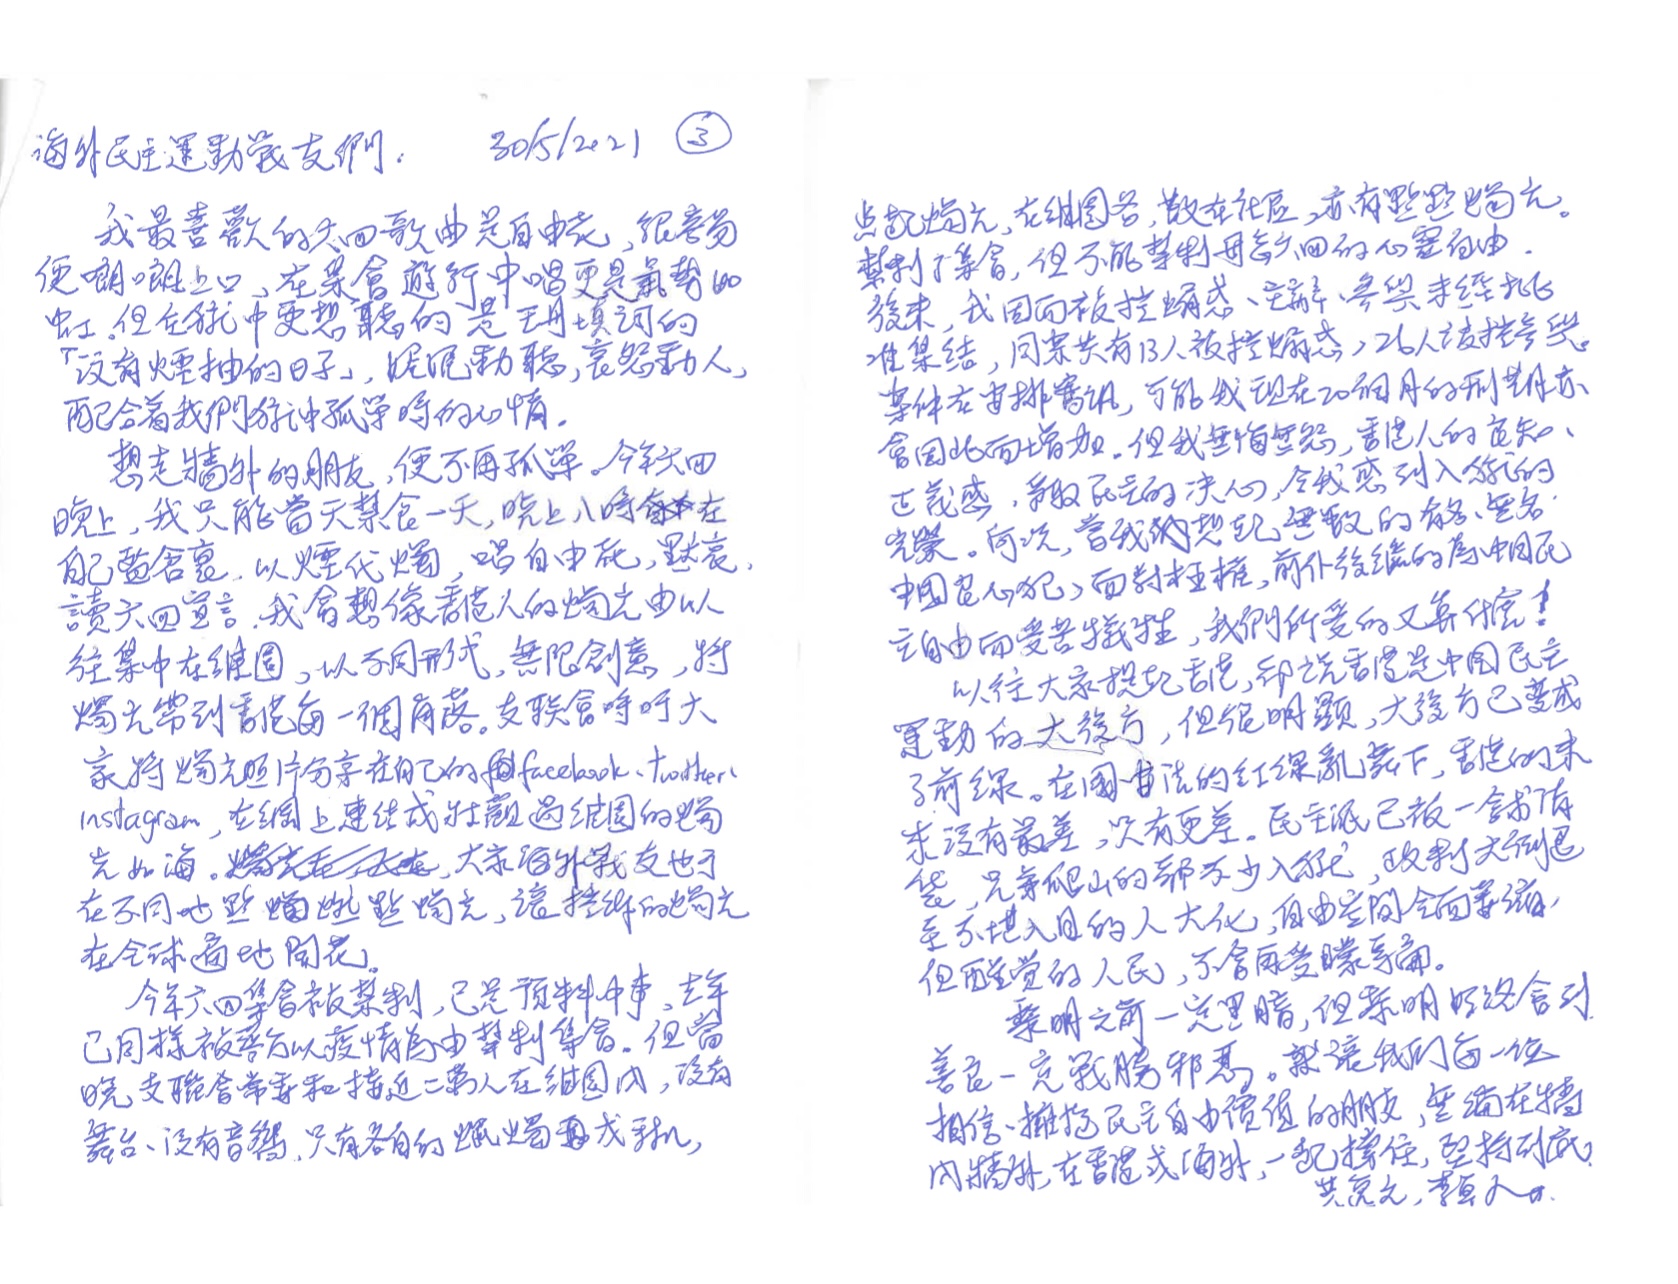 海外民主運動戰友們： 30/5/2021 ③
我最喜歡的六四歌曲是自由花，很容易
便啷啷上口，在集會遊行中唱更是氣勢如
虹。但在獄中更想聽的是王丹填詞的
「沒有煙抽的日子」，娓娓動聽，哀怨動人，
配合着我們獄中孤單時的心情。
想起牆外的朋友，便不再孤單。今年六四
晚上，我只能當天禁食一天，晚上八時 在
自己監倉裏，以煙代燭，唱自由花，默哀，
讀六四宣言。我會想像香港人的燭光由以
往集中在維園，以不同形式，無限創意，將
燭光帶到香港每一個角落。支聯會呼吁大
家將燭光照片分享在自己的facebook、twitter、
instagram，在網上連結成壯觀過維園的燭
光如海。大家海外戰友也可
在不同地點 點燭光，讓 的燭光
在全球遍地開花。
今年六四集會被禁制，已是預料中事，去年
已同樣被警方以疫情為由禁制集會。但當
晚，支聯會常委和接近二萬人在維園內，沒有
舞台、沒有音響，只有各自的蠟燭 或手機，
点起燭光，在維園各 散在社區，亦有點點燭光。
禁制了集會，但不能禁制毋忘六四的心靈自由。
後來，我因而被控煽惑、主辦、參與未經批
准集結，同案共有13人被控煽惑，26人被控參與。
案件在安排審訊，可能我現在20個月的刑期亦
會因此而增加。但我無悔無怨，香港人的良知、
正義感，爭取民主的决心，令我感到入獄的
光榮。何況，當我們想起無數的有名、無名
中國良心犯，面對極權，前仆後繼的為中國民
主自由而受苦犧牲，我們所受的又算什麼！
以往大家提起香港，都說香港是中國民主
運動的大後方，但很明顯，大後方已變成
了前線。在國安法的红線亂舞下，香港的未
來沒有最差，只有更差。民主派已被一 打
，兄弟爬山的都不少入獄，政制大倒退
至不堪入目的人大化，自由空間全面萎縮，
但醒觉的人民，不會再受矇 。
黎明之前一定黑暗，但黎明始終會到，
善良一定戰勝邪惡。就讓我们每一位
相信、擁抱民主自由價值的朋友，無論在牆
内牆外，在香港或海外，一起撐住，堅持到底。
共 ，